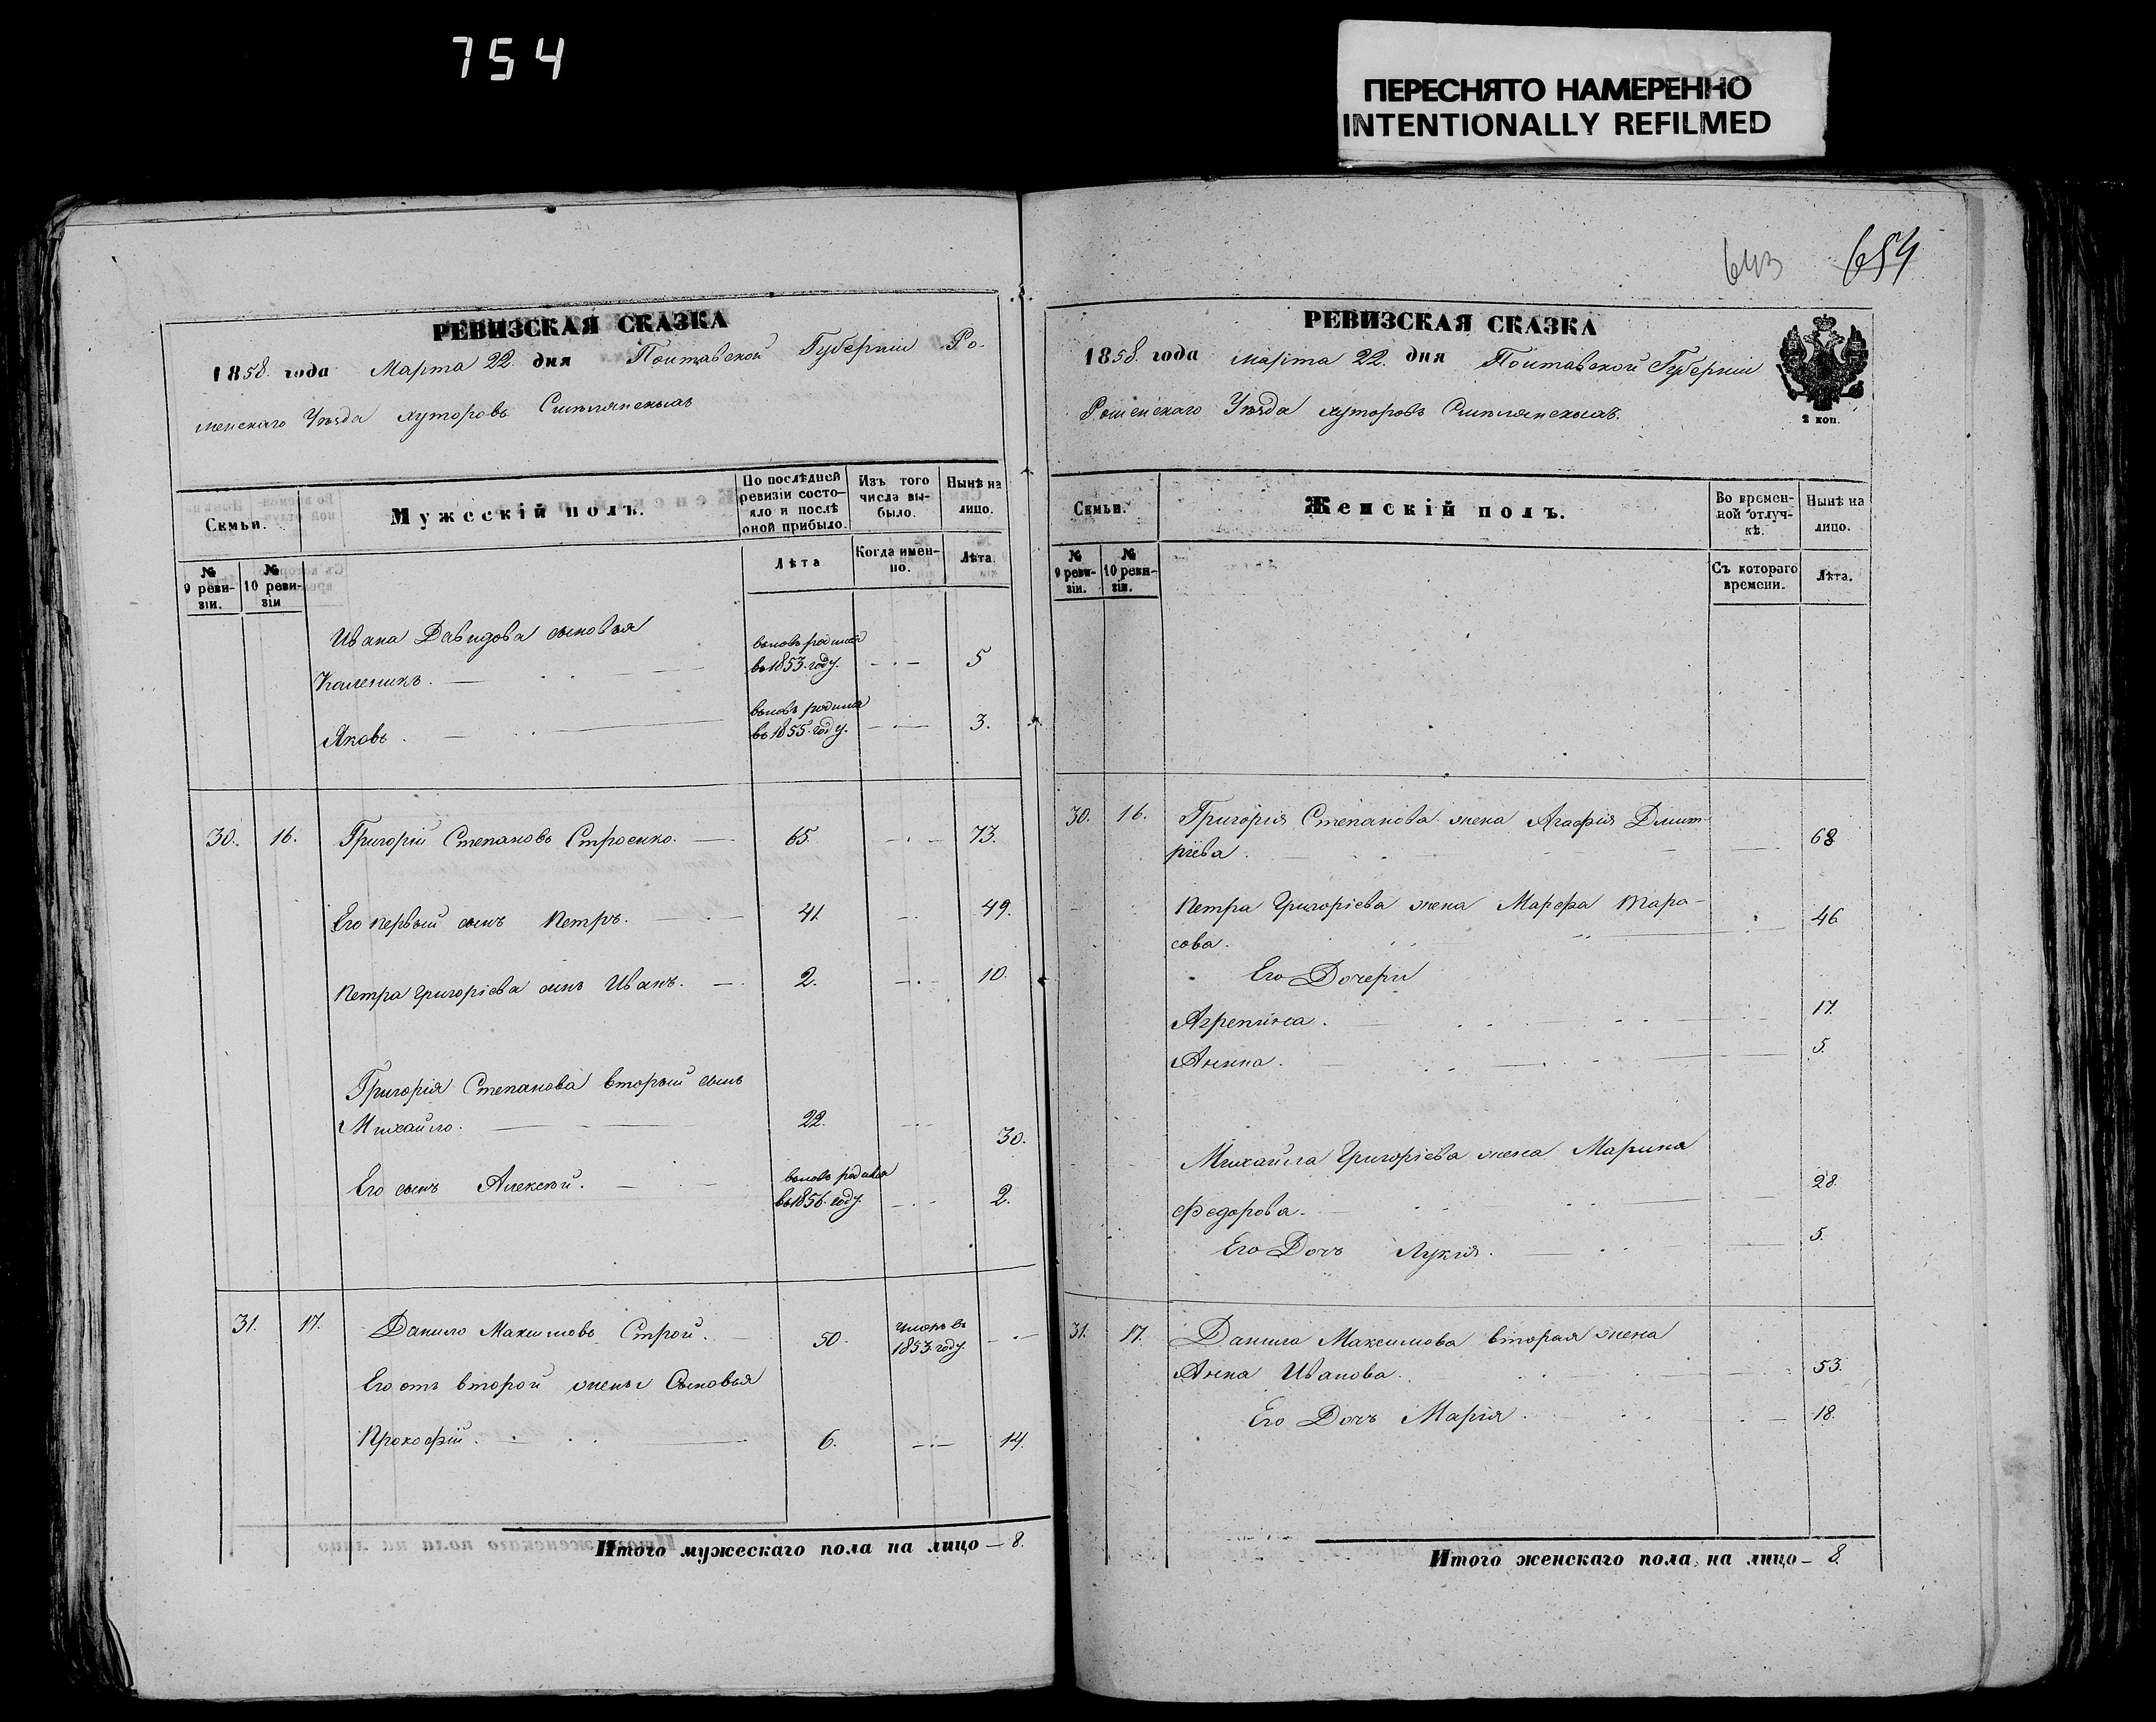 754
ПЕРЕСНЯТО НАМЕРЕННО
INTENTIONALLY REFILMED
РЕВИЗСКАЯ СКАЗКА
1858. года Марта 22. дня Полтавской Губерніи Ро-
менскаго Уѣзда хуторовъ
Семьи.
Мужескій полъ.
По послѣдней
ревизіи состо-
яло и послѣ
оной прибыло.
Изъ того
числа вы-
было.
Нынѣ на
лицо.
№
9 реви-
зіи.
№
10 реви-
зіи
Лѣта
Когда имен-
но.
Лѣта.
Ивана Давидова сыновья
Каленикъ. вновь родился въ 1853. году. 5
Яковъ. вновь родился въ 1855. году. 3.
30. 16. Григорій Степановъ Строенко. 65. 73.
Его первый сынъ Петръ. 41. 49.
Петра Григоріева сынъ Иванъ. 2. 10.
Григорія Степанова вторый сынъ
Михайло. 22. 30.
Его сынъ Алексѣй. вновь родился въ 1856. году. 2.
31. 17. Данило Максимовъ Строй. 50. умеръ въ 1853. году.
Его отъ второй жены Сыновья
Прокофій. 6. 14.
Итого мужескаго пола на лицо — 8.
643 654
РЕВИЗСКАЯ СКАЗКА
1858. года марта 22. дня Полтавской Губерніи
Роменскаго Уѣзда хуторовъ
2 коп.
Семьи.
Женскій полъ.
Во времен-
ной отлуч-
кѣ.
Нынѣ на
лицо.
№
9 реви-
зіи.
№
10 реви-
зіи.
Съ котораго
времени.
Лѣта.
30. 16. Григорія Степанова жена Агафія Дмит-
ріева. 68
Петра Григоріева жена Марфа Тара-
сова. 46
Его Дочери
Агрепина. 17.
Анна. 5.
Михайла Григоріева жена Марина
Федорова. 28.
Его Дочь Лукія. 5.
31. 17. Данила Максимова вторая жена
Анна Иванова. 53.
Его Дочь Марія. 18.
Итого женскаго пола на лицо — 8.